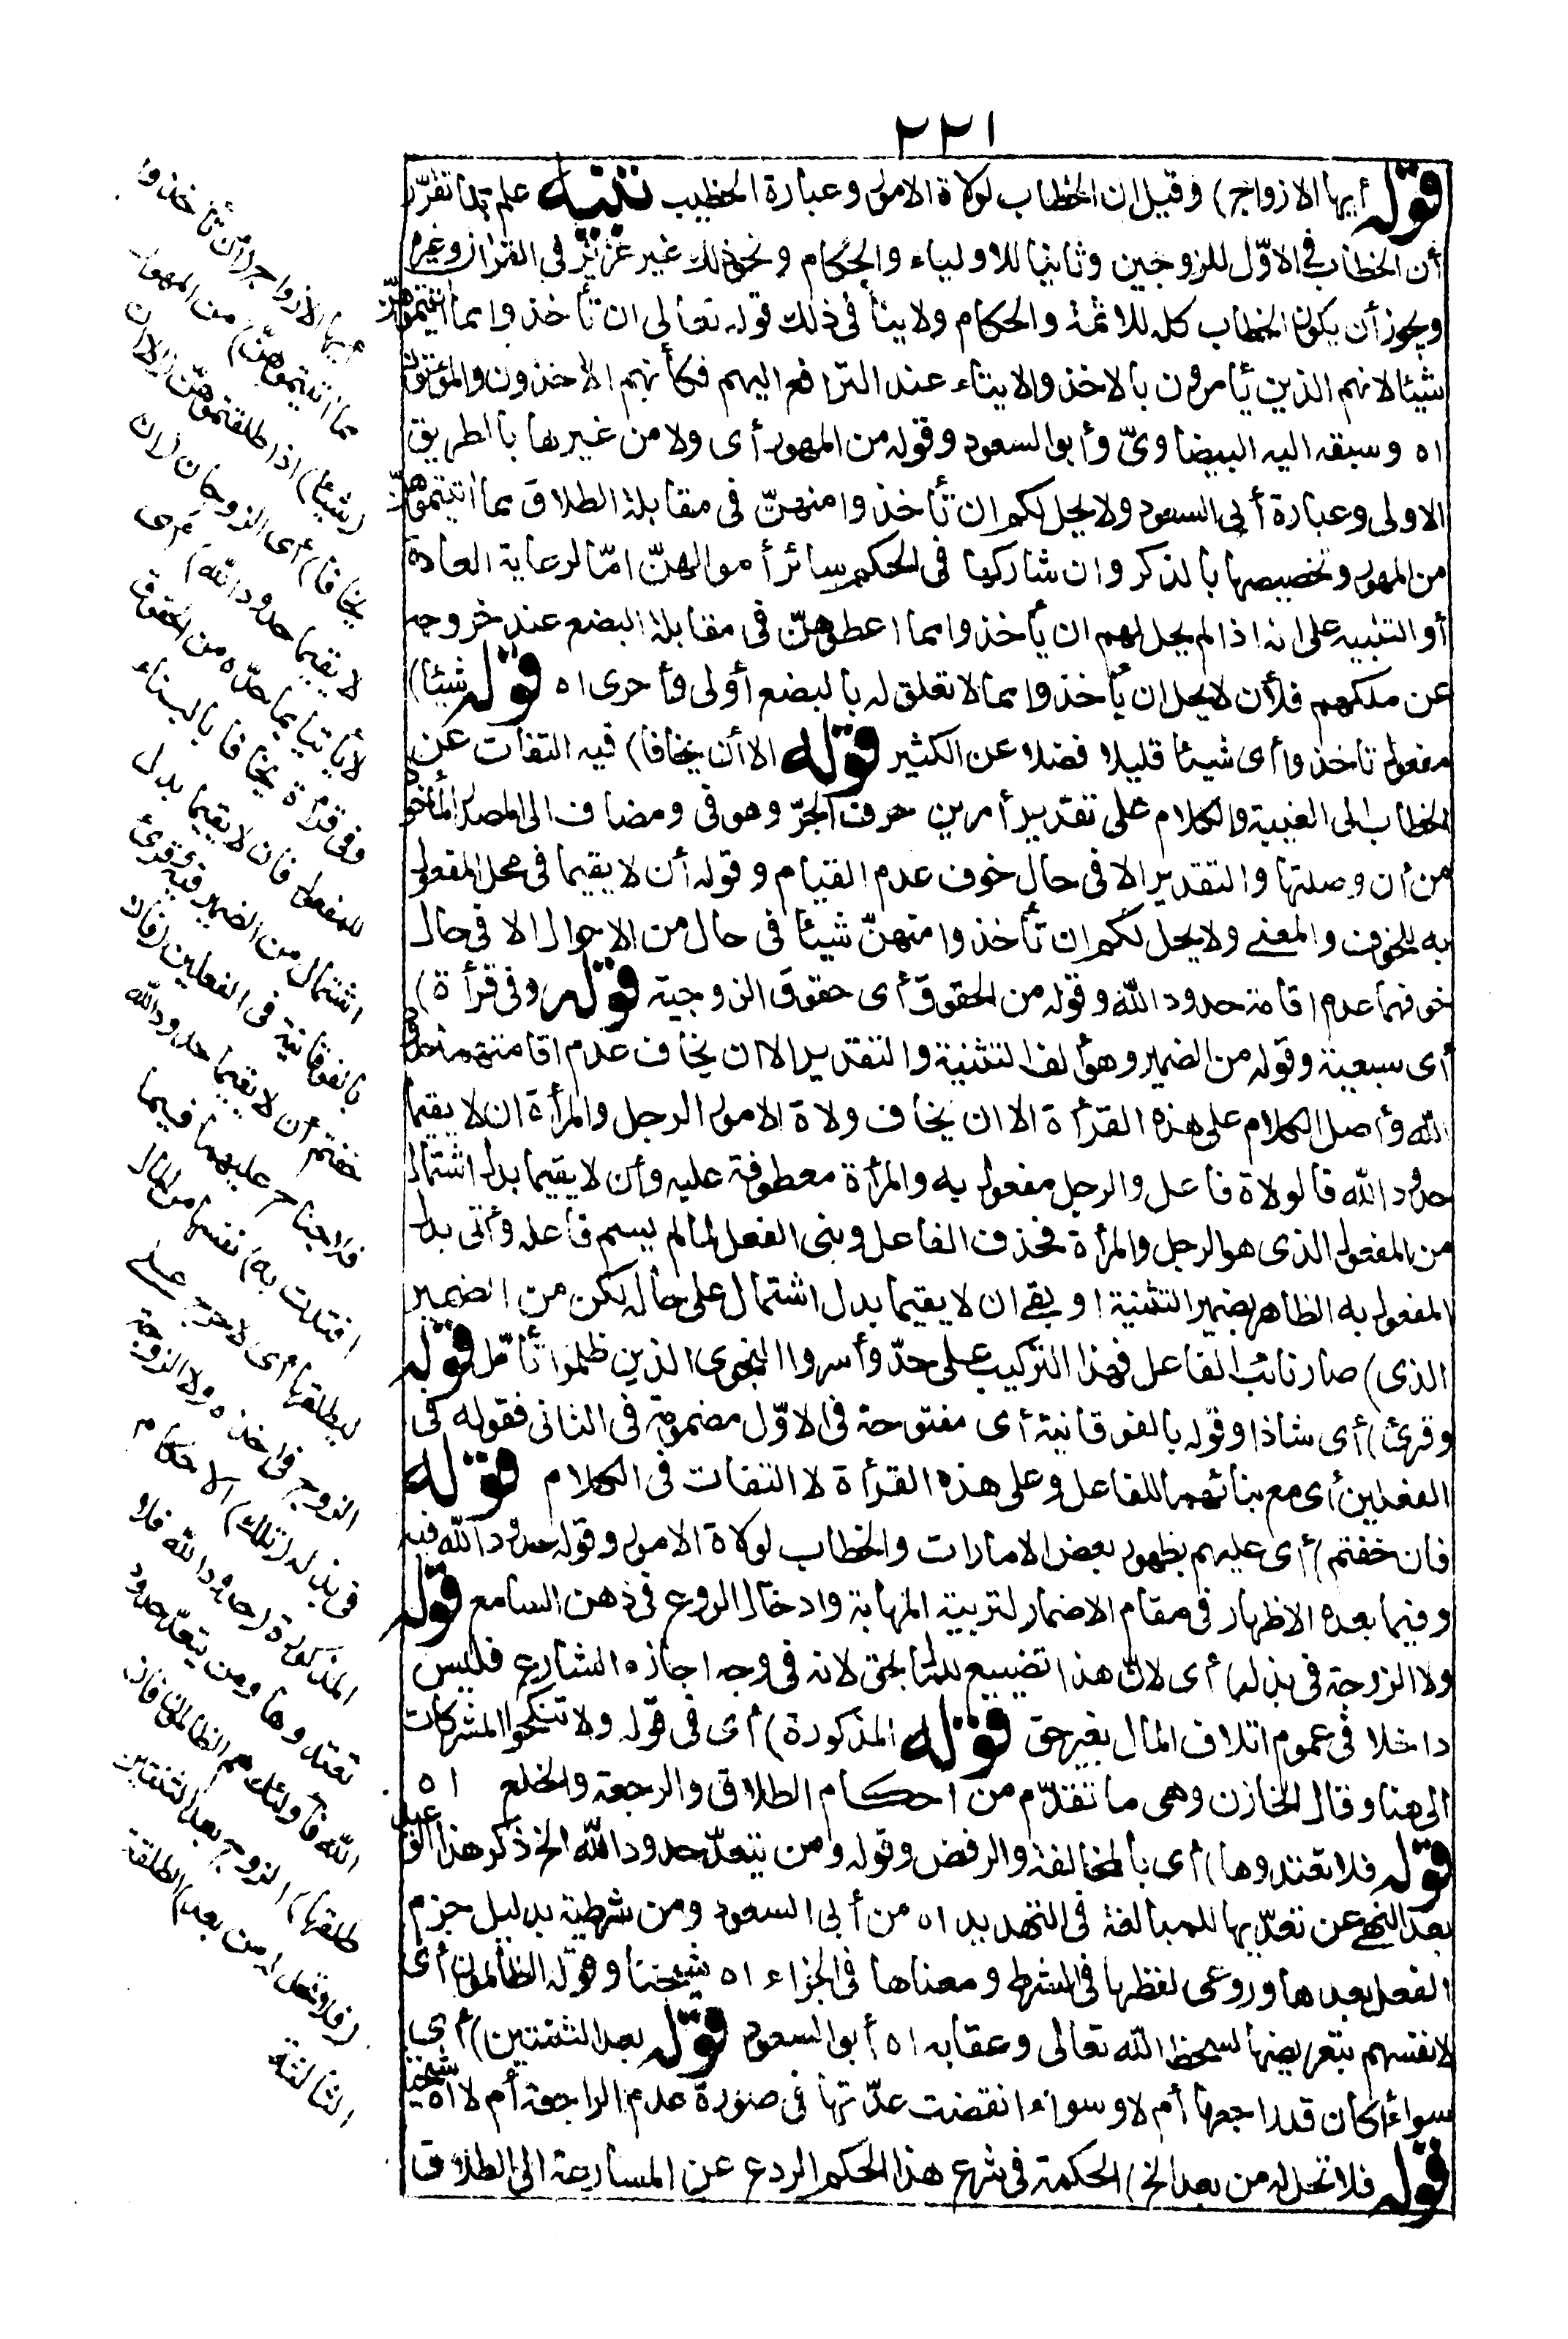 ٢٢١
قوله أيها الازواج) وقيل ان الخطاب لولاة الامور وعبارة الخطيب تنبيه علم مما تقرّر
أن الخطاب في الاوّل للزوجين وثانيا للاولياء والحكام ونحو ذلك غير عزيز في القران وغيره
ويجوز أن يكون الخطاب كله للائمة والحكام ولا ينافي ذلك قوله تعالى ان تأخذوا مما اتيتموهنّ
شيئا لانهم الذين يأمرون بالاخذ والايتاء عند الترافع اليهم فكأنهم الآخذون والمؤتون
اه وسبقه اليه البيضاويّ وأبو السعود وقوله من المهور أى ولا من غيرها بالطريق
الاولى وعبارة أبى السعود ولا يحل لكم ان تأخذوا منهنّ فى مقابلة الطلاق مما أتيتموهنّ
من المهور وتخصيصها بالذكر وان شاركها فى الحكم سائر أموالهنّ امّا لرعاية العادة
أو التنبيه على انه اذا لم يحل لهم ان يأخذوا مما اعطوهنّ فى مقابلة البضع عند خروجه
عن ملكهم فلأن لا يحل ان يأخذوا مما لا تعلق له بالبضع أولى وأحرى اه قوله شيئا)
مفعول تاخذوا أى شيئا قليلا فضلا عن الكثير قوله الا أن يخافا) فيه التفات عن
الخطاب الى الغيبة والكلام على تقدير أمرين حرف الجرّ وهو فى ومضاف الى المصدر المأخوذ
من أن وصلتها والتقدير الا فى حال خوف عدم القيام وقوله أن لا يقيما فى محل المفعول
به للخوف والمعنى ولا يحل لكم ان تأخذوا منهنّ شيئا فى حال من الاحوال الا فى حال
خوفهما عدم اقامة حدود الله وقوله من الحقوق أى حقوق الزوجية قوله وفى قرأة)
أى سبعية وقوله من الضمير وهو ألف التثنية والتقدير الا ان يخاف عدم اقامتهما حدود
الله وأصل الكلام على هذه القرأة الا ان يخاف ولاة الامور الرجل والمرأة ان لا يقيما
حدود الله فالولاة فاعل والرجل مفعول به والمرأة معطوفة عليه وأن لا يقيما بدل اشتمال
من المفعول الذى هو الرجل والمرأة فحذف الفاعل وبنى الفعل لما لم يسم فاعله وأتى بدل
المفعول به الظاهر بضمير التثنية او بقى ان لا يقيما بدل اشتمال على حاله لكن من الضمير
الذى) صار نائب الفاعل فهذا التركيب على حدّ وأسروا النجوى الذين ظلموا تأمّل قوله
وقرئ) أى شاذا وقوله بالفوقانية أى مفتوحة فى الاوّل مضمومة فى الثانى فقوله فى
الفعلين أى مع بنائهما للفاعل وعلى هذه القرأة لا التفات فى الكلام قوله
فان خفتم) أى عليهم بظهور بعض الامارات والخطاب لولاة الامور وقوله حدود الله فيه
وفيما بعده الاظهار فى مقام الاضمار لتربية المهابة وادخال الروع فى ذهن السامع قوله
ولا الزوجة فى بذله) أى لانّ هذا تضييع للمال بحق لانه فى وجه اجازه الشارع فليس
داخلا فى عموم اتلاف المال بغير حق قوله المذكورة) أى فى قوله ولا تنكحوا المشركات
الى هنا وقال الخازن وهى ما تقدّم من احكام الطلاق والرجعة والخلع اه
قوله فلا تعتدوها) أى بالمخالفة والرفض وقوله ومن يتعدّ حدود الله الخ ذكر هذا الوعيد
بعد النهى عن تعدّيها للمبالغة فى التهديد اه من أبى السعود ومن شرطية بدليل جزم
الفعل بعدها وروعى لفظها فى الشرط ومعناها فى الجزاء اه شيخنا وقوله الظالمون أى
لانفسهم بتعريضها لسخط الله تعالى وعقابه اه أبو السعود قوله بعد الثنتين) أى
سواء أكان قد راجعها أم لا وسواء انقضت عدّتها فى صورة عدم المراجعة أم لا اه شيخنا
قوله فلا تحل له من بعد الخ) الحكمة فى شرع هذا الحكم الردع عن المسارعة الى الطلاق
أيها الازواج (أن تأخذوا
مما اتيتموهنّ) من المهور
(شيئا) اذا طلقتموهنّ (الا ان
يخافا) أى الزوجان (ان
لا يقيما حدود الله) أى
لا يأتيا بما حدّه من الحقوق
وفى قرأة يخافا بالبناء
للمفعول فان لا يقيما بدل
اشتمال من الضمير فيه وقرئ
بالفوقانية فى الفعلين (فان
خفتم أن لا يقيما حدود الله
فلا جناح عليهما فيما
افتدت به) نفسها من المال
ليطلقها أى لا حرج على
الزوج فى اخذه ولا الزوجة
فى بذله (تلك) الاحكام
المذكورة (حدود الله فلا
تعتدوها ومن يتعدّ حدود
الله فأولئك هم الظالمون فان
طلقها) الزوج بعد الثنتين
(فلا تحل له من بعد) الطلقة
الثالثة